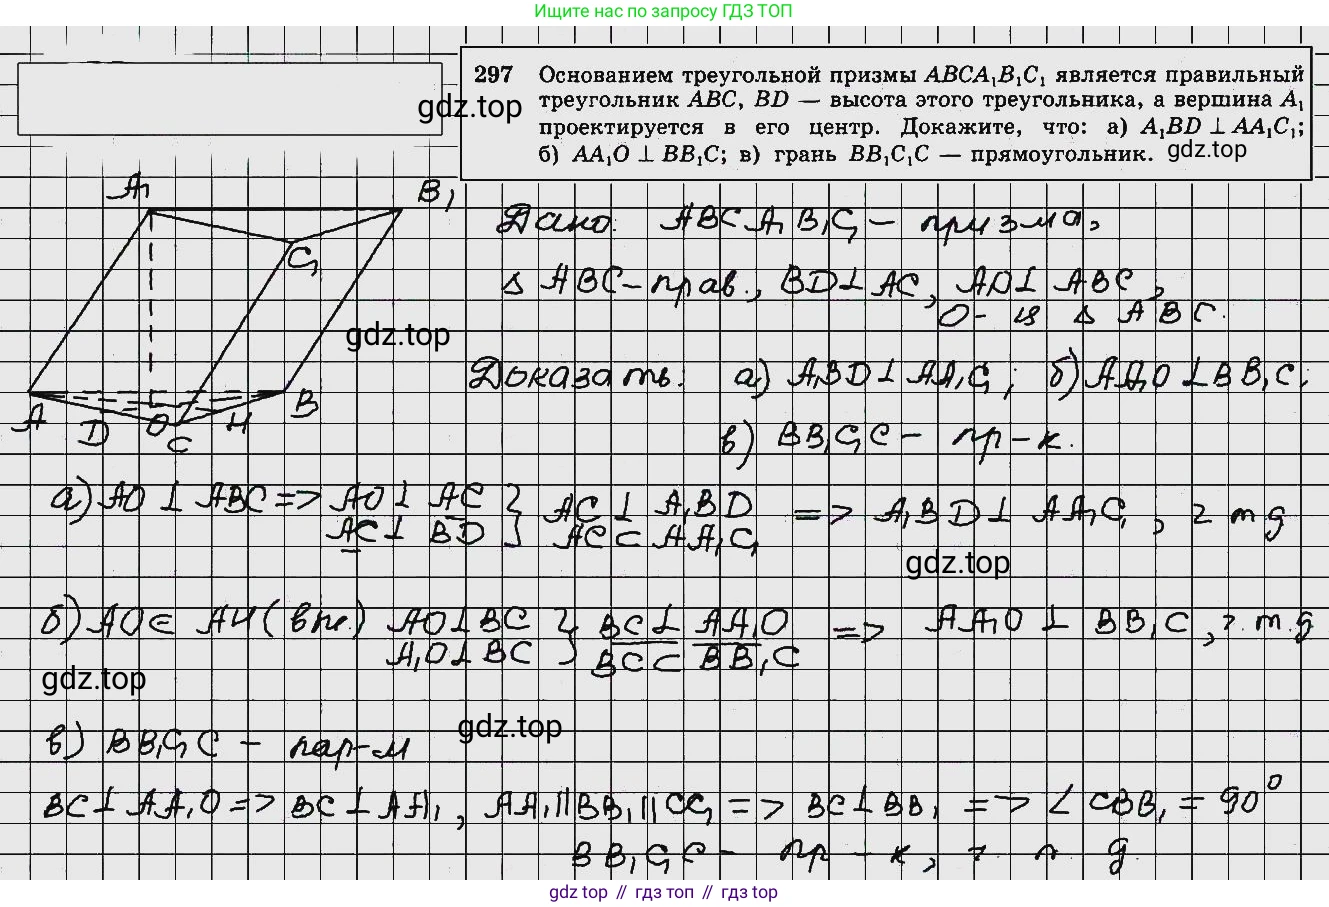 Ищите нас по запросу ГДЗ ТОП
297 Основанием треугольной призмы ABCA₁B₁C₁ является правильный
треугольник ABC, BD — высота этого треугольника, а вершина A₁
проектируется в его центр. Докажите, что: а) A₁BD ⊥ AA₁C₁;
б) AA₁O ⊥ BB₁C; в) грань BB₁C₁C — прямоугольник.
gdz.top
gdz.top
A₁
B₁
C₁
A
D
O
C
H
B
gdz.top
Дано: ABCA₁B₁C₁ – призма,
Δ ABC – прав., BD ⊥ AC, AO ⊥ ABC,
O – ц Δ ABC.
Доказать: а) A₁BD ⊥ AA₁C₁; б) AA₁O ⊥ BB₁C;
в) BB₁C₁C – пр-к.
а) AO ⊥ ABC => AO ⊥ AC } AC ⊥ A₁BD => A₁BD ⊥ AA₁C₁, ч т д
AC ⊥ BD } AC ⊂ AA₁C₁
gdz.top
б) AO ∈ AH (вπ.) AO ⊥ BC } BC ⊥ AA₁O => AA₁O ⊥ BB₁C, ч.т.д
A₁O ⊥ BC } BC ⊂ BB₁C
gdz.top
gdz.top
в) BB₁C₁C – пар-м
BC ⊥ AA₁O => BC ⊥ AA₁, AA₁ || BB₁ || CC₁ => BC ⊥ BB₁ => ∠ CBB₁ = 90°
BB₁C₁C – пр-к, ч т д
gdz.top // гдз топ // гдз top